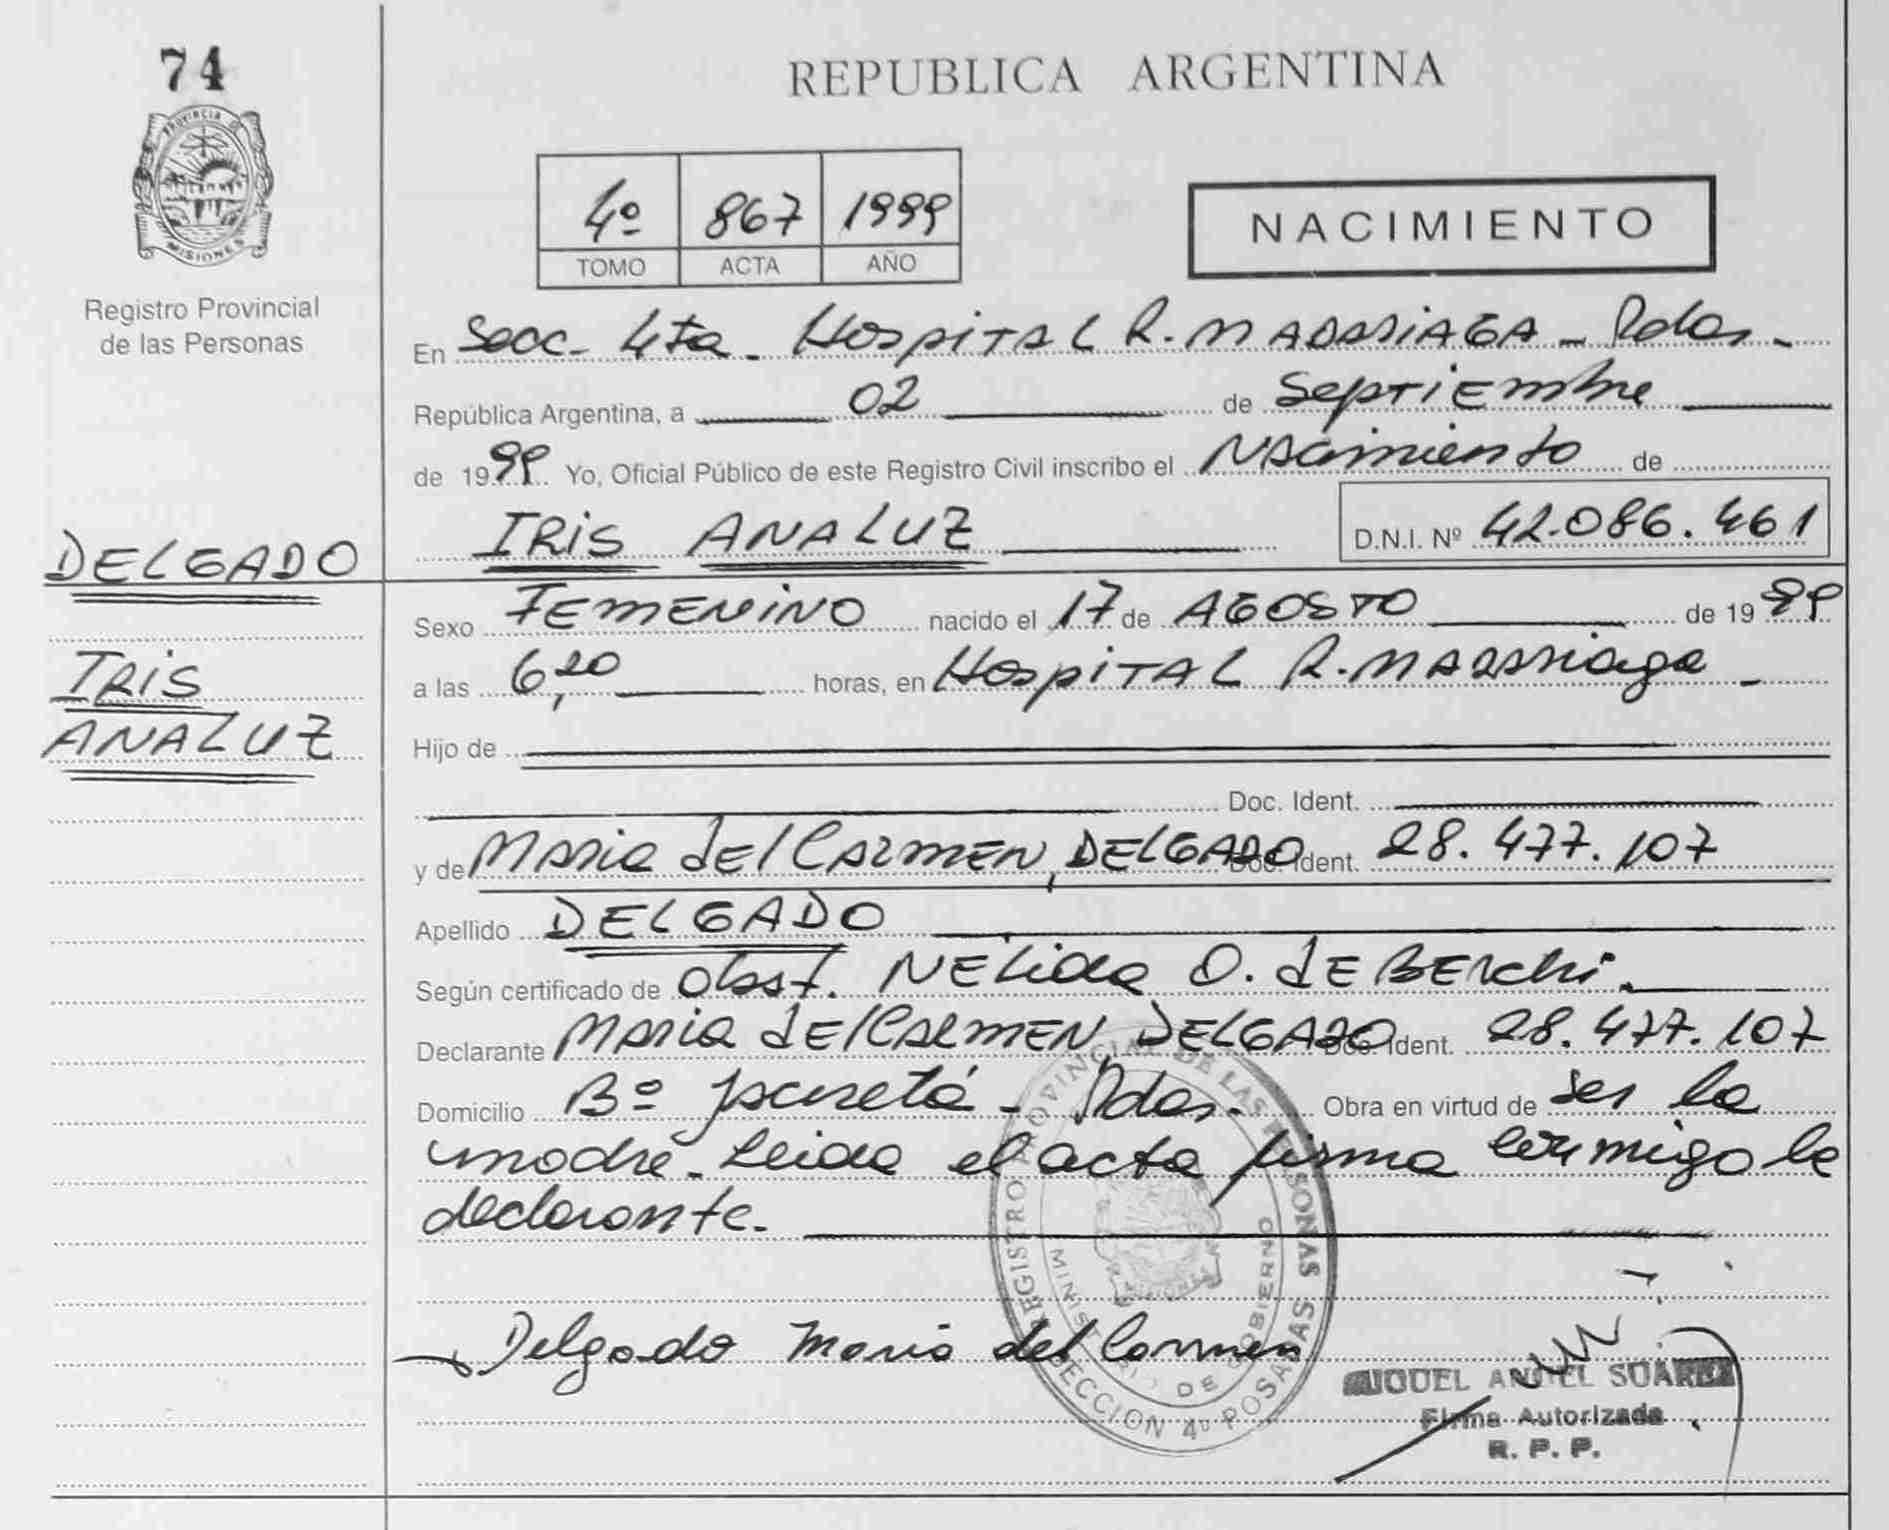 74
PROVINCIA DE
MISIONES
Registro Provincial
de las Personas
DELGADO
IRIS
ANALUZ
REPUBLICA ARGENTINA
4º 867 1999
TOMO ACTA AÑO
NACIMIENTO
En Secc. 4ta. Hospital R. MADARIAGA - Pdas.
República Argentina, a 02 de Septiembre
de 1999 Yo, Oficial Público de este Registro Civil inscribo el Nacimiento de
IRIS ANALUZ D.N.I. Nº 42.086.461
Sexo FEMENINO nacido el 17 de AGOSTO de 1999
a las 6,20 horas, en Hospital R. Madariaga
Hijo de
Doc. Ident.
y de Maria del Carmen, DELGADO Doc. Ident. 28.477.107
Apellido DELGADO
Según certificado de Obst. NElida O. de Berchi.
Declarante Maria del Carmen, DELGADO Doc. Ident. 28.477.107
Domicilio Bº Yacyretá - Pdas. Obra en virtud de ser la
madre. Leida el acta firma conmigo la
declarante.
Delgado Maria del Carmen
REGISTRO PROVINCIAL DE LAS PERSONAS
MINISTERIO DE GOBIERNO
SECCION 4º POSADAS
MIGUEL ANGEL SUAREZ
Firma Autorizada
R. P. P.